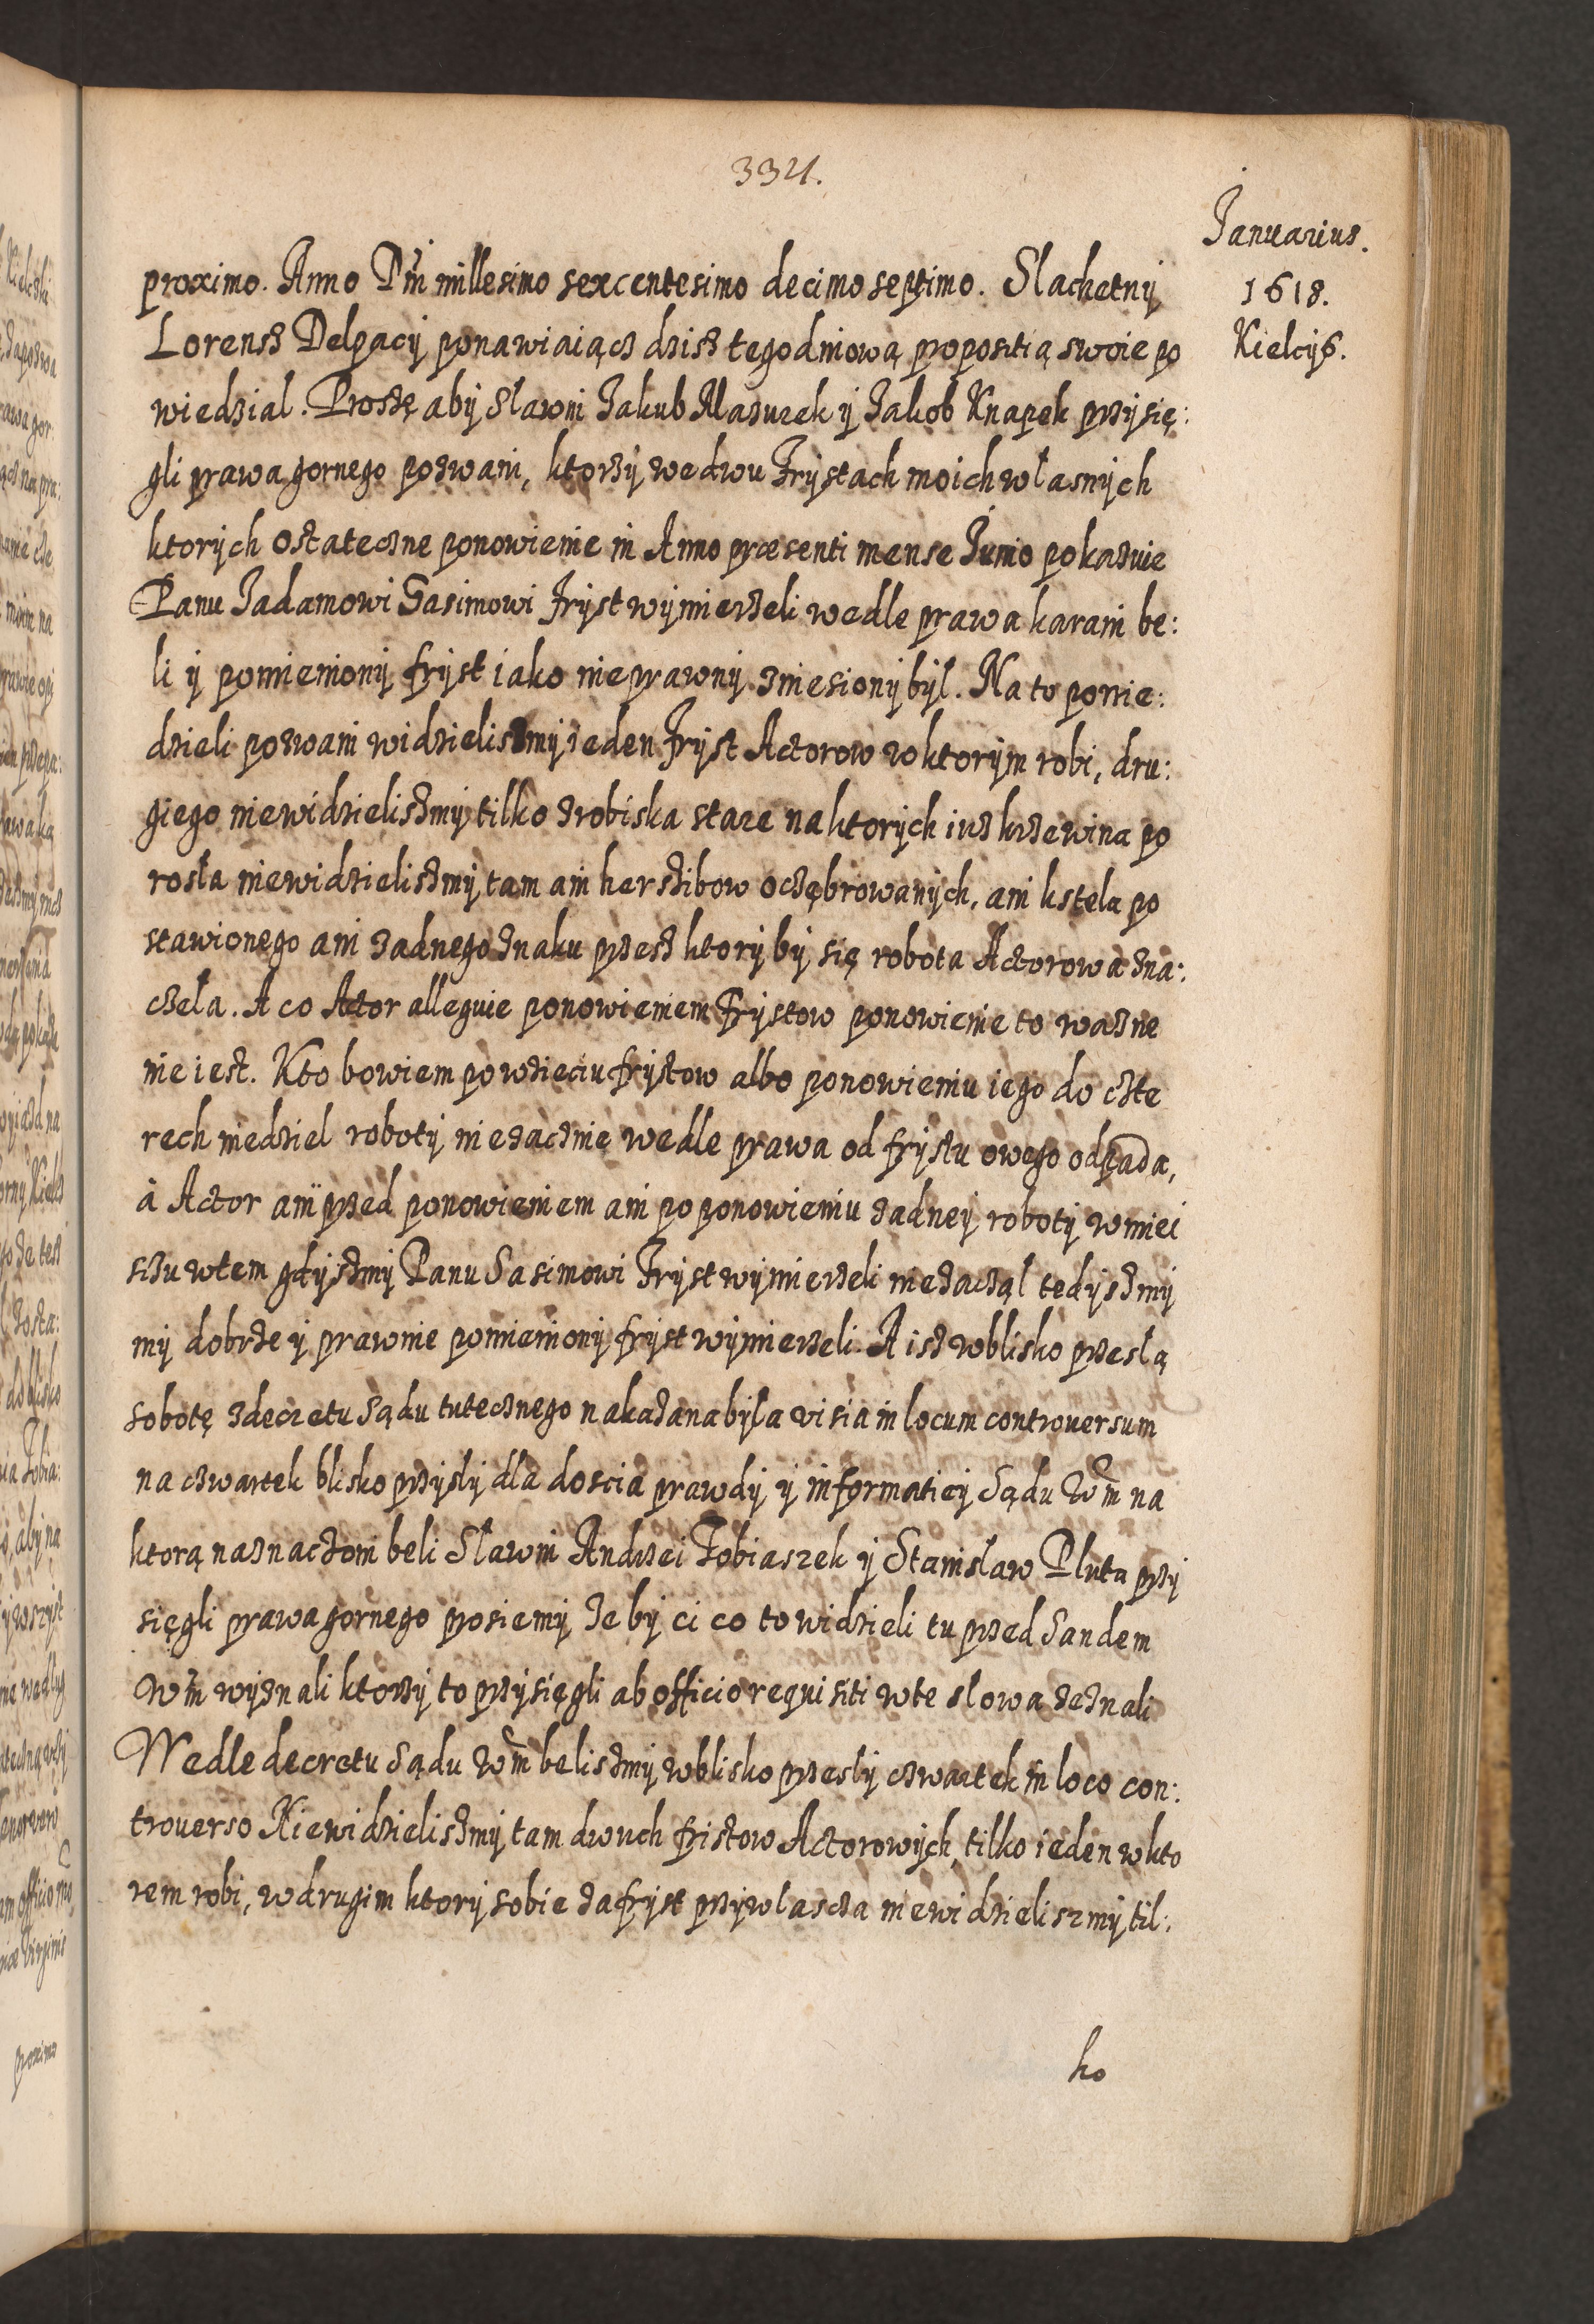 3321.
Januarius.
1618.
Kielcys.
proximo. Anno Dm̃ millesimo sexcentesimo decimo septimo. Slachetny
Lorensz Delpacy ponawiaiącz dzisz tegodniową propositią swoie po
wiedzial. Proszę aby Slawni Jakub Mazurek y Jakob Knapek przysię:
gli prawa gornego pozwani, ktorzy we dwu Frystach moich własnych
ktorych ostateczne ponowienie in Anno præsenti mense Junio pokazuie
Panu Jadamowi Sasimowi Fryst wymierzeli wedle prawa karani be:
li y pomieniony fryst iako nieprawny zniesiony był. Na to powie:
dzieli pozwani widzieliszmy ieden Fryst Actorow w ktorym robi, dru:
giego niewidzieliszmy tilko zrobiska stare na ktorych iuz krzewina po
rosła niewidzieliszmy tam ani hersztbow oczębrowanych, ani kstela po
stawionego ani zadnego znaku przesz ktory by się robota Actorowa zna:
czela. A co Actor alleguie ponowieniem Frystow ponowienie to wazne
nie iest. Kto bowiem po wzieciu frystow albo ponowieniu iego do czte
rech niedziel roboty nie zacznie wedle prawa od frystu owego odpada,
à Actor ani przed ponowieniem ani po ponowieniu zadney roboty w miei
sczu wtem gdyszmy Panu Sasimowi Fryst wymierzeli nie zaczął tedyszmy
my dobrze y prawnie pomieniony fryst wymierzeli. A isz w blisko przeszlą
sobotę z decretu Sądu tutecznego nakazana była visia in locum controuersum
na czwartek blisko przyszły dla doscia prawdy y informatiey Sądu Wm̃ na
ktorą naznaczoni beli Slawni Andrzei Tobiaszek y Stanislaw Pluta przy
sięgli prawa gornego prosiemy ze by ci co to widzieli tu przed Sandem
Wm̃ wyznali ktorzy to przysięgli ab officio requisiti w te slowa zeznali
Wedle decretu Sądu Wm̃ beliszmy w blisko przeszly czwartek in loco con:
trouerso Niewidzieliszmy tam dwuch fristow Actorowych, tilko ieden w kto
rem robi, w drugim ktory sobie za fryst przywlascza niewidzieliszmy til:
ko